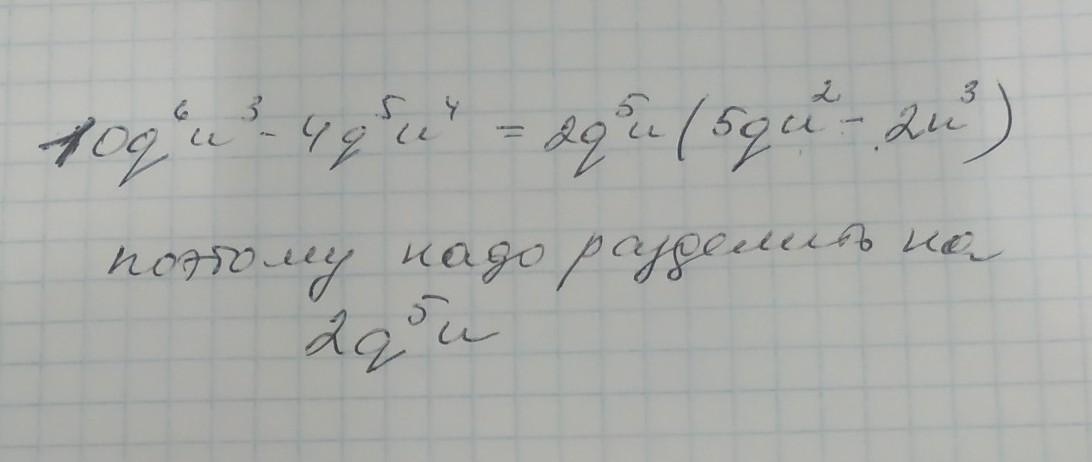 10q⁶u³ - 4q⁵u⁴ = 2q⁵u(5qu² - 2u³)
поэтому надо разделить на
2q⁵u